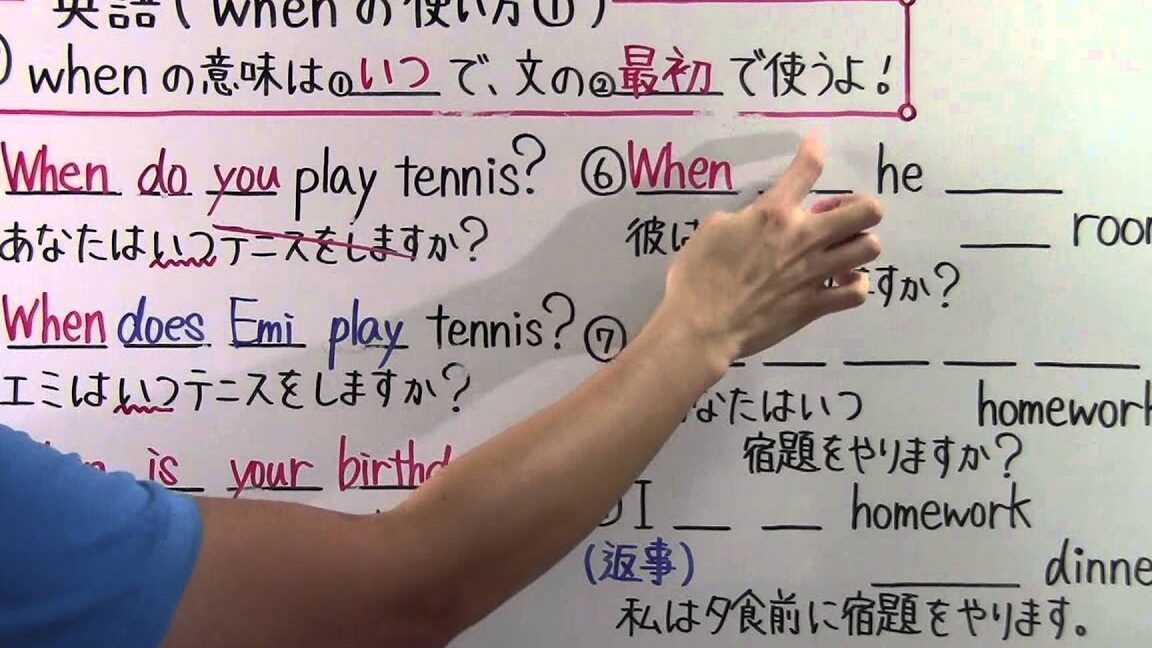 英語(whenの使い方①)
whenの意味は①いつで、文の②最初で使うよ!
When do you play tennis?
あなたはいつテニスをしますか?
When does Emi play tennis?
エミはいつテニスをしますか?
is your
⑥When __ he __
彼は
__ room
すか?
⑦
__ __ __ __
なたはいつ
homework
宿題をやりますか?
I __ __ homework
(返事)
__
私は夕食前に宿題をやります。